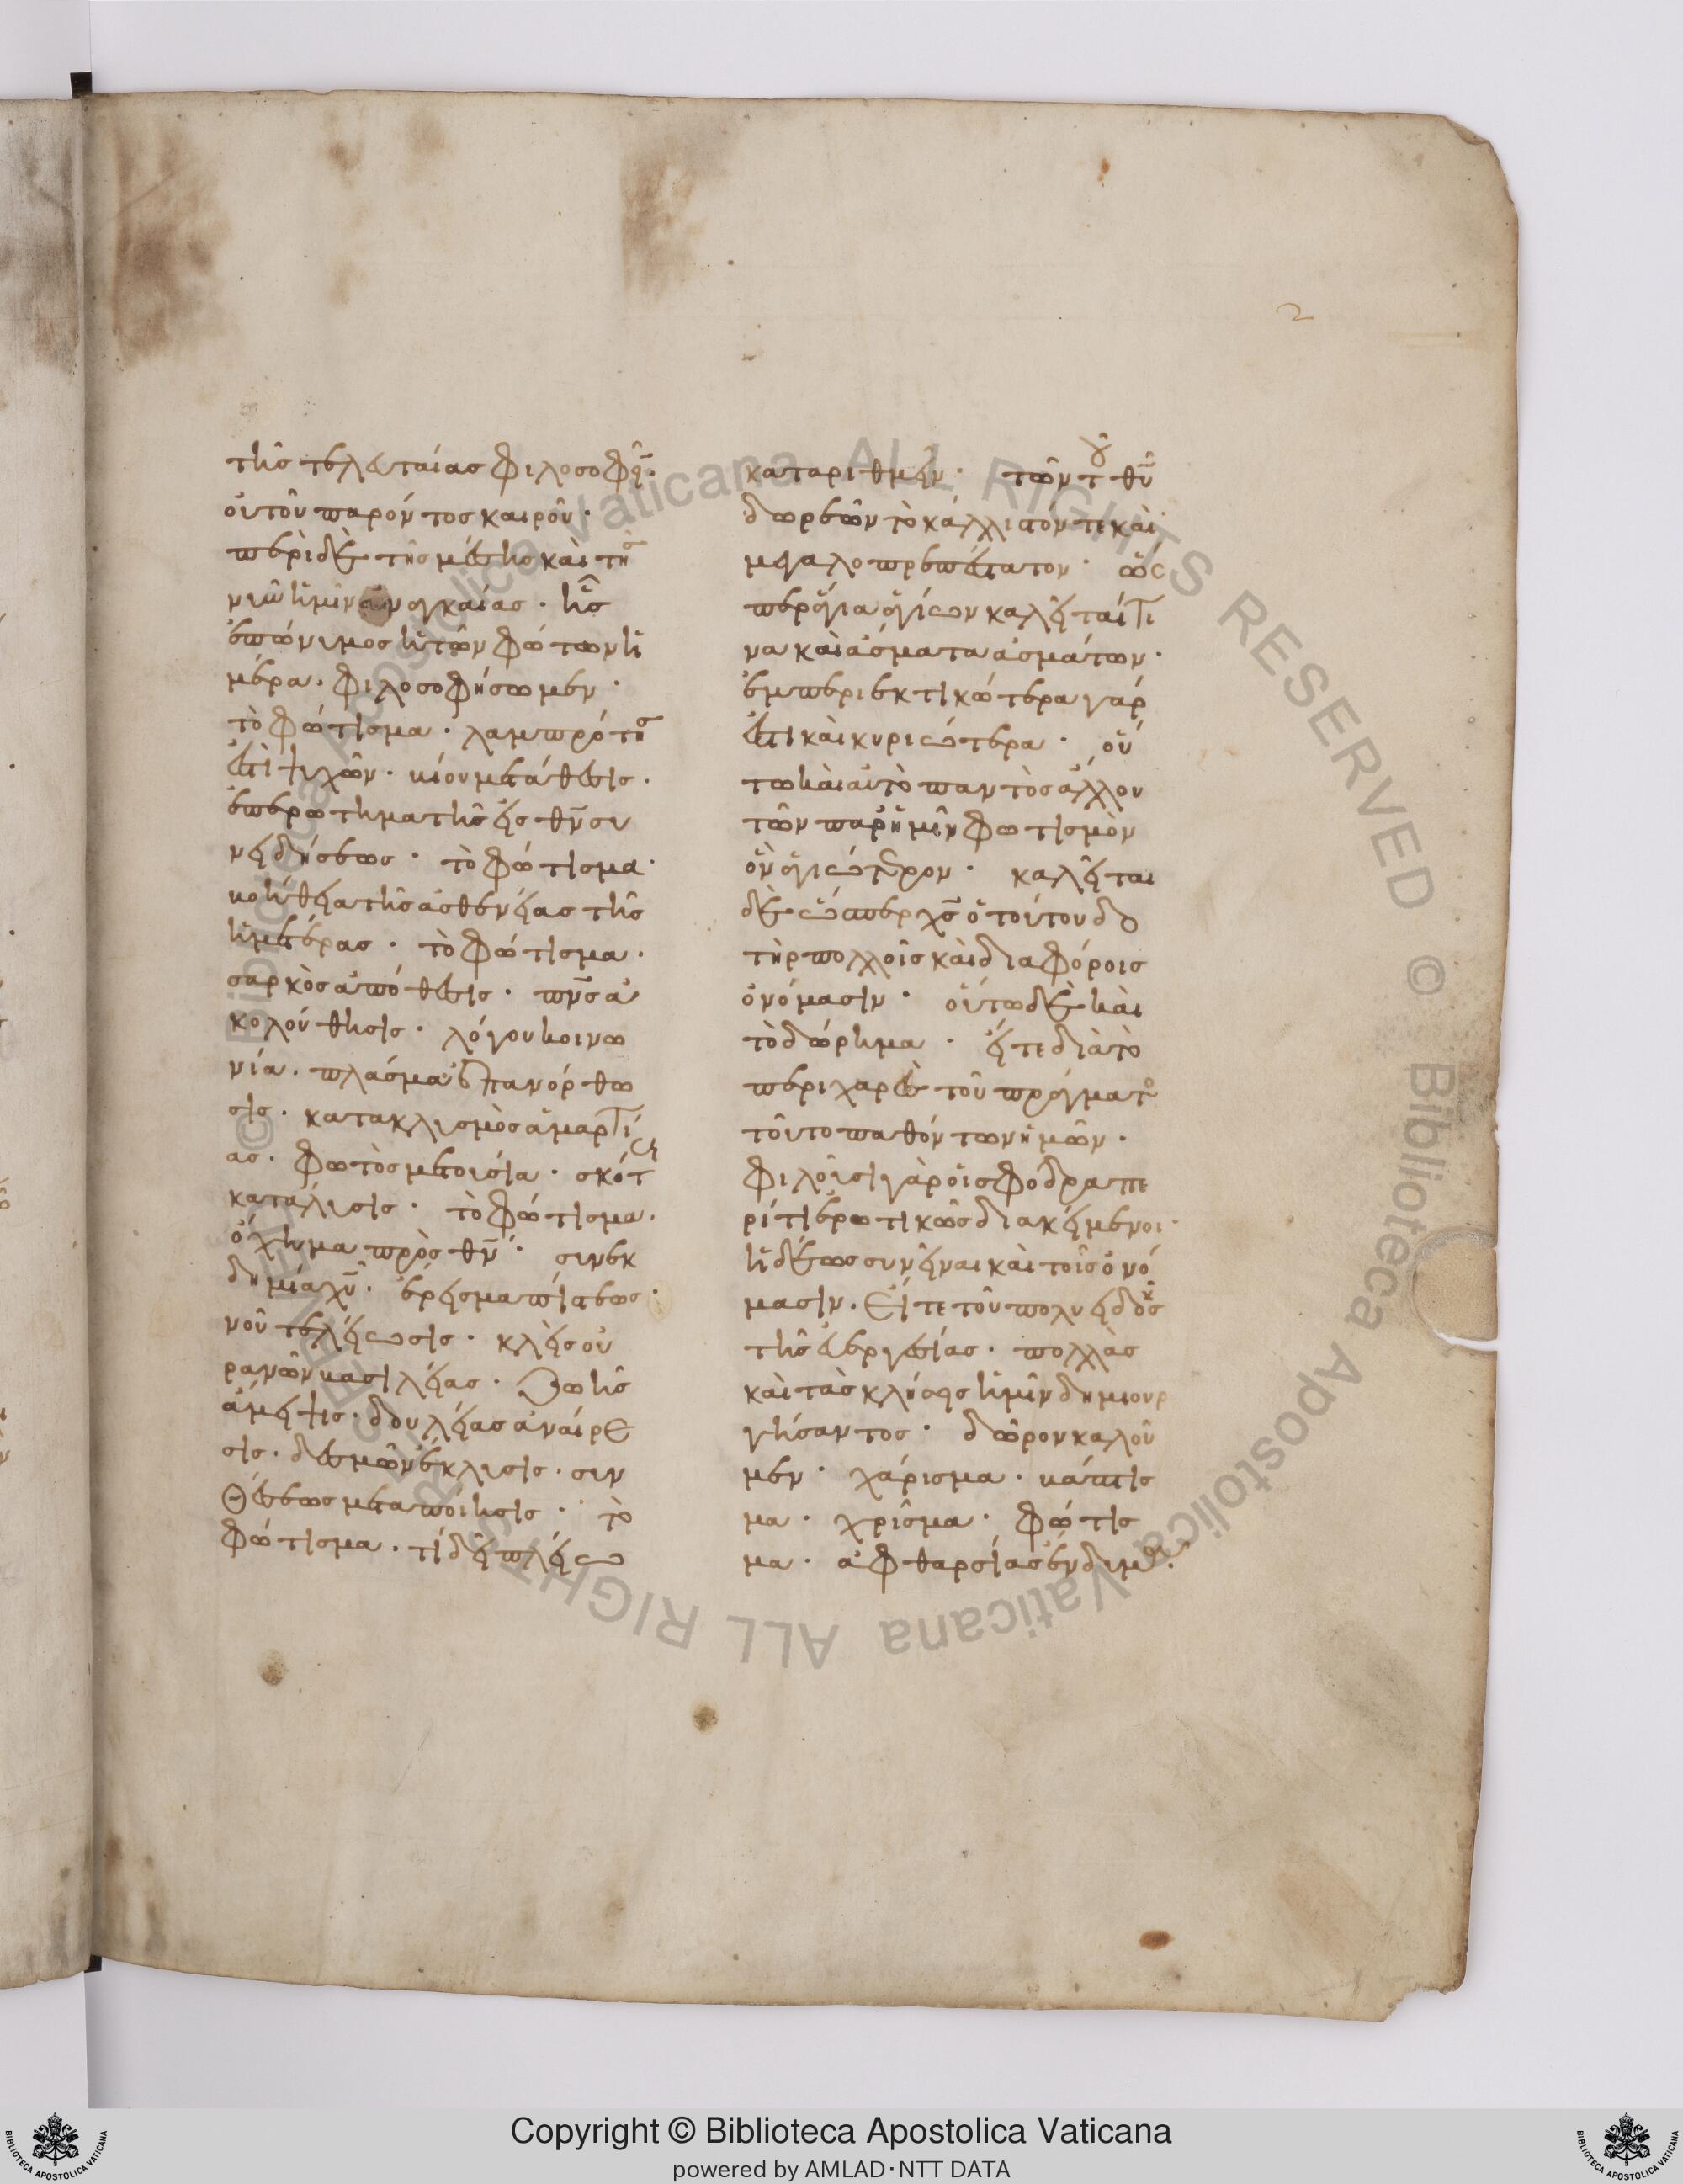 2
τῆς τελευταίας φιλοσοφεῖν·
οὐ τοῦ παρόντος καιροῦ·
περὶ δὲ τῆς μέσης καὶ τῆς
νῦν ἡμῖν ἀναγκαίας· ἧς
ἐπώνυμος ἡ τῶν φώτων ἡ
μέρα· φιλοσοφήσωμεν·
τὸ φώτισμα· λαμπρότης
ἐστὶ ψυχῶν· βίου μετάθεσις·
ἐπερώτημα τῆς εἰς θν συ
νειδήσεως· τὸ φώτισμα·
βοήθεια τῆς ἀσθενείας τῆς
ἡμετέρας· τὸ φώτισμα·
σαρκὸς ἀπόθεσις· πνς ἀ
κολούθησις· λόγου κοινω
νία· πλάσματος ἐπανόρθω
σις· κατακλυσμὸς ἁμαρτί
ας· φωτὸς μετουσία· σκότους
κατάλυσις· τὸ φώτισμα·
ὄχημα πρὸς θν· συνεκ
δημία χυ· ἔρεισμα πίστεως·
νοῦ τελείωσις· κλεὶς οὐ
ρανῶν βασιλείας· ζωῆς
ἄμειψις· δουλείας ἀναίρε
σις· δεσμῶν ἔκλυσις· συν
θέσεως μεταποίησις· τὸ
φώτισμα· τί δεῖ πλείω
καταριθμεῖν· τῶν τοῦ θυ
δωρεῶν τὸ κάλλιστόν τε καὶ
μεγαλοπρεπέστατον· ὥς
περ ἅγια ἁγίων καλεῖταί τι
να καὶ ἄσματα ἀσμάτων·
ἐμπεριεκτικώτερα γάρ
ἐστι καὶ κυριώτερα· οὕ
τω καὶ αὐτὸ παντὸς ἄλλου
τῶν παρ ἡμῖν φωτισμὸν
ὂν ἁγιώτερον· καλεῖται
δὲ ὥσπερ χς ὁ τούτου δο
τὴρ πολλοῖς καὶ διαφόροις
ὀνόμασιν· οὕτω δὲ καὶ
τὸ δώρημα· εἴτε διὰ τὸ
περιχαρὲς τοῦ πράγματος
τοῦτο παθόντων ἡμῶν·
φιλοῦσι γὰρ οἱ σφόδρα πε
ρί τι ἐρωτικῶς διακείμενοι·
ἡδέως συνεῖναι καὶ τοῖς ὀνό
μασιν· εἴτε τοῦ πολυειδοῦς
τῆς εὐεργεσίας· πολλὰς
καὶ τὰς κλήσεις ἡμῖν δημιουρ
γήσαντος· δῶρον καλοῦ
μεν· χάρισμα· βάπτισ
μα· χρῖσμα· φώτισ
μα· ἀφθαρσίας ἔνδυμα·
Copyright © Biblioteca Apostolica Vaticana
powered by AMLAD·NTT DATA